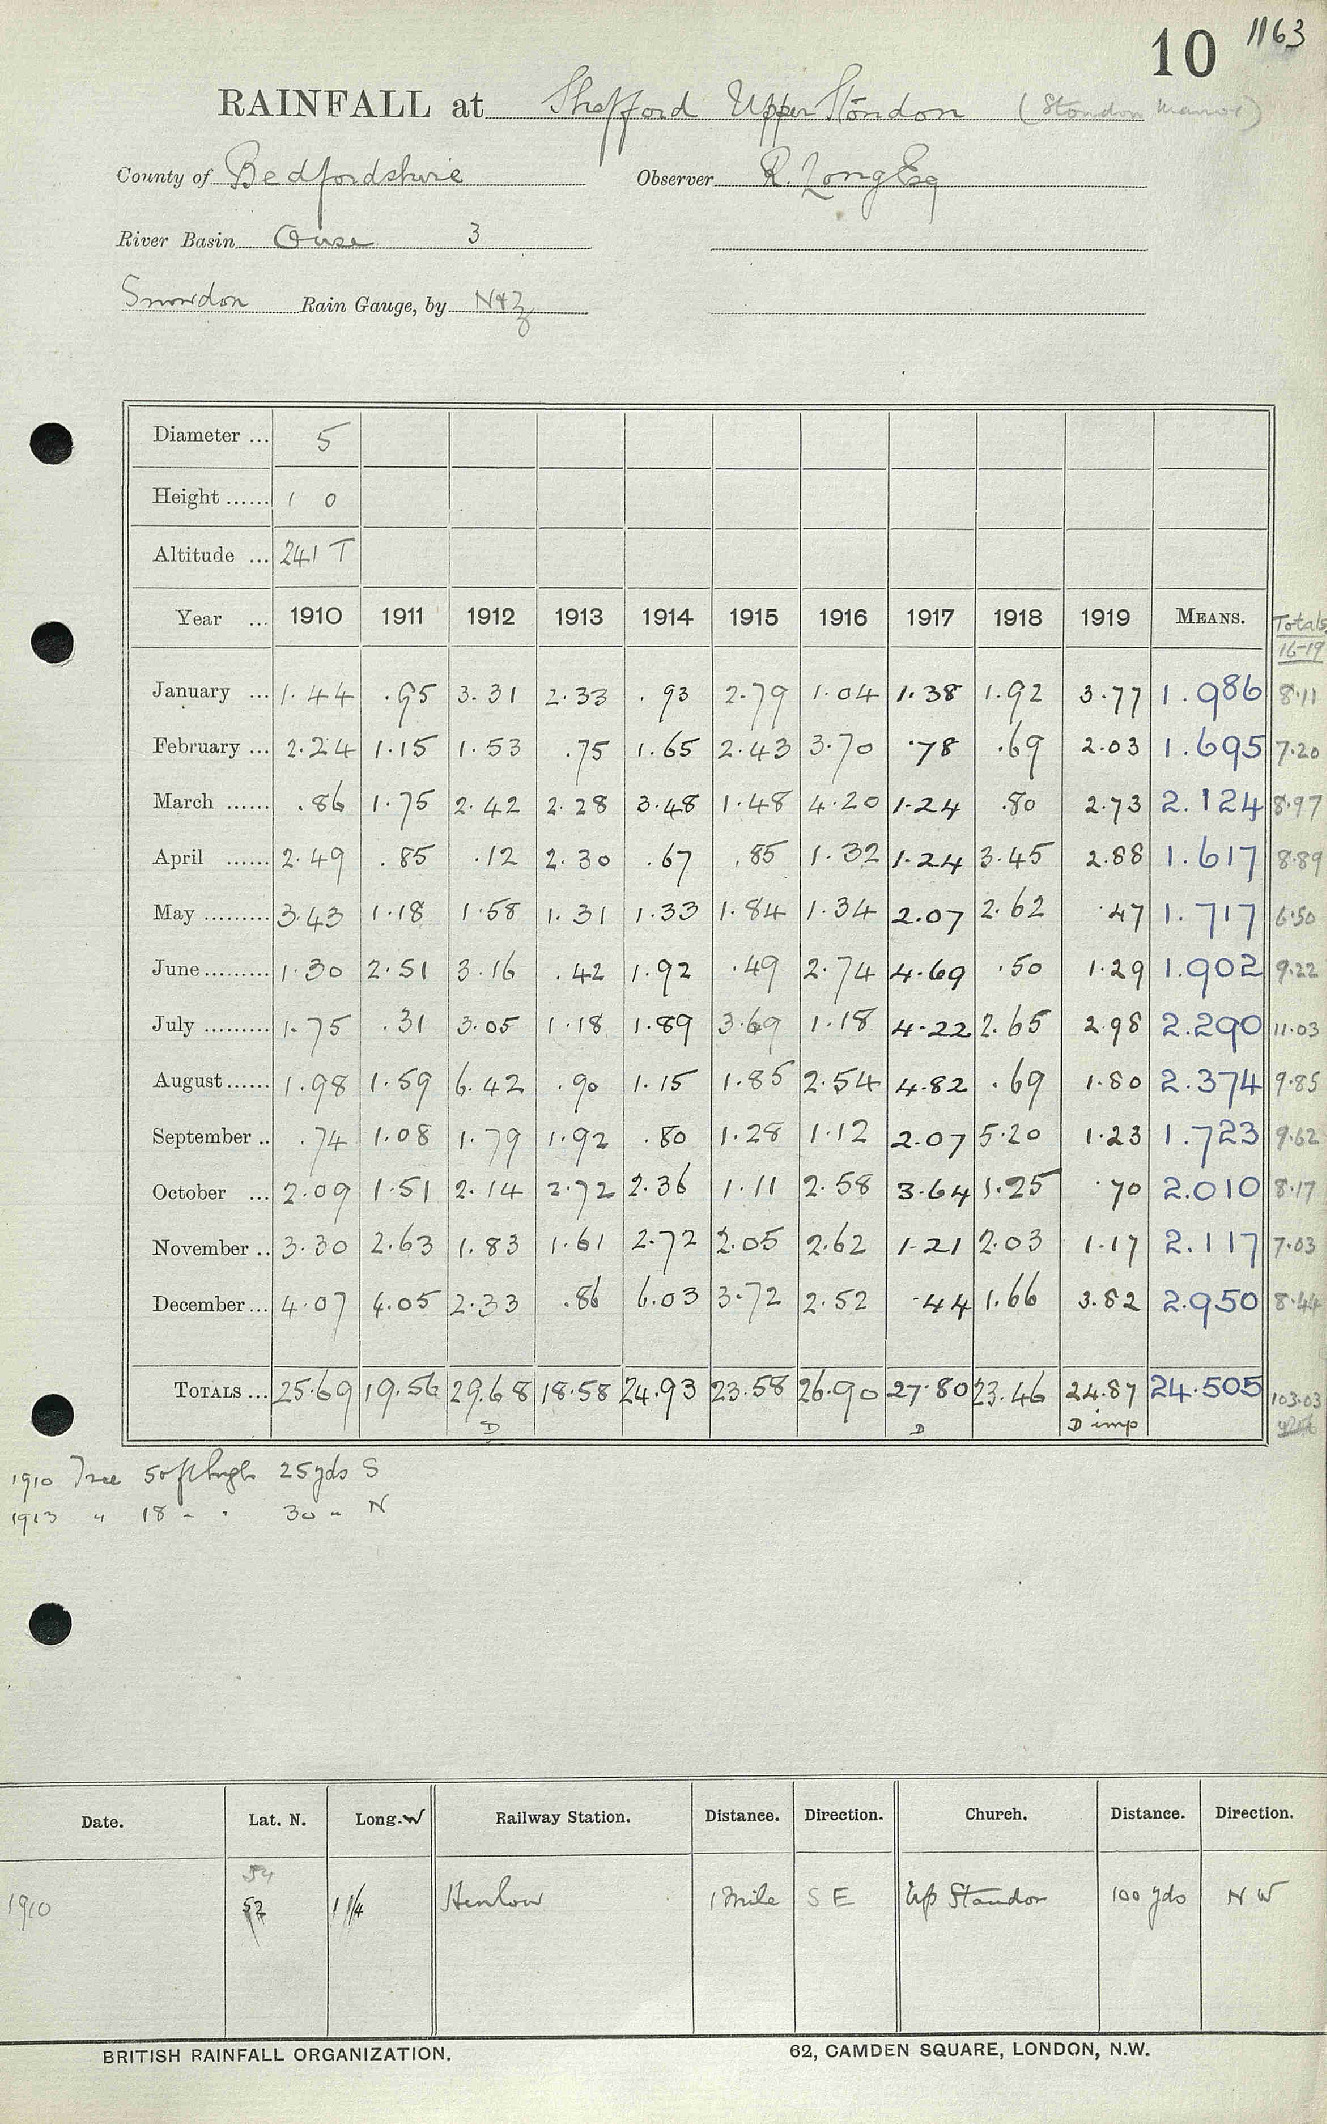 10 1163
RAINFALL at Shefford Upper Stondon (Stondon Manor)
County of Bedfordshire Observer R. Long Esq
River Basin Ouse 3
Snowdon Rain Gauge, by N&Z
Diameter ... 5
Height ...... 1 0
Altitude ... 241 T
Year ... 1910 1911 1912 1913 1914 1915 1916 1917 1918 1919 MEANS. Totals 16-19
January ... 1.44 .95 3.31 2.33 .93 2.79 1.04 1.38 1.92 3.77 1.986 8.11
February ... 2.24 1.15 1.53 .75 1.65 2.43 3.70 .78 .69 2.03 1.695 7.20
March ...... .86 1.75 2.42 2.28 3.48 1.48 4.20 1.24 .80 2.73 2.124 8.97
April ...... 2.49 .85 .12 2.30 .67 .85 1.32 1.24 3.45 2.88 1.617 8.89
May ......... 3.43 1.18 1.58 1.31 1.33 1.84 1.34 2.07 2.62 .47 1.717 6.50
June ......... 1.30 2.51 3.16 .42 1.92 .49 2.74 4.69 .50 1.29 1.902 9.22
July ......... 1.75 .31 3.05 1.18 1.89 3.69 1.18 4.22 2.65 2.98 2.290 11.03
August ...... 1.98 1.59 6.42 .90 1.15 1.85 2.54 4.82 .69 1.80 2.374 9.85
September .. .74 1.08 1.79 1.92 .80 1.28 1.12 2.07 5.20 1.23 1.723 9.62
October ... 2.09 1.51 2.14 2.72 2.36 1.11 2.58 3.64 1.25 .70 2.010 8.17
November .. 3.30 2.63 1.83 1.61 2.72 2.05 2.62 1.21 2.03 1.17 2.117 7.03
December ... 4.07 4.05 2.33 .86 6.03 3.72 2.52 .44 1.66 3.82 2.950 8.44
TOTALS ... 25.69 19.56 29.68 18.58 24.93 23.58 26.90 27.80 23.46 24.87 24.505 103.03
D D D imp
1910 Tree 50 ft high 25 yds S
1913 " 18 " " 30 " N
Date. Lat. N. Long. W Railway Station. Distance. Direction. Church. Distance. Direction.
1910 52 1 1/4 Henlow 1 mile S E Up Stondon 100 yds N W
BRITISH RAINFALL ORGANIZATION. 62, CAMDEN SQUARE, LONDON, N.W.